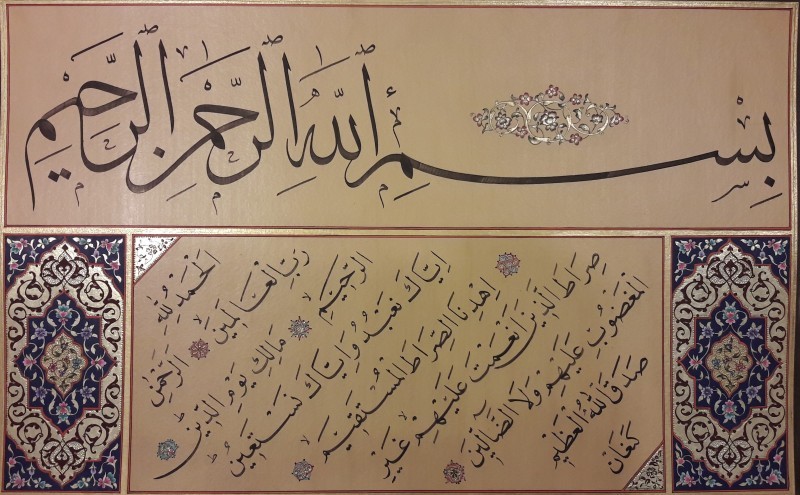 بِسْمِ ٱللَّهِ ٱلرَّحْمٰنِ ٱلرَّحِيْمِ
اَلْحَمْدُ لِلّٰهِ
رَبِّ الْعَالَمِيْنَ الرَّحْمٰنِ
الرَّحِيْمِ مَالِكِ يَوْمِ الدِّيْنِ
اِيَّاكَ نَعْبُدُ وَاِيَّاكَ نَسْتَعِيْنُ
اِهْدِنَا الصِّرَاطَ الْمُسْتَقِيْمَ
صِرَاطَ الَّذِيْنَ اَنْعَمْتَ عَلَيْهِمْ غَيْرِ
الْمَغْضُوْبِ عَلَيْهِمْ وَلَا الضَّآلِّيْنَ
صَدَقَ اللّٰهُ الْعَظِيْمُ
كنعان